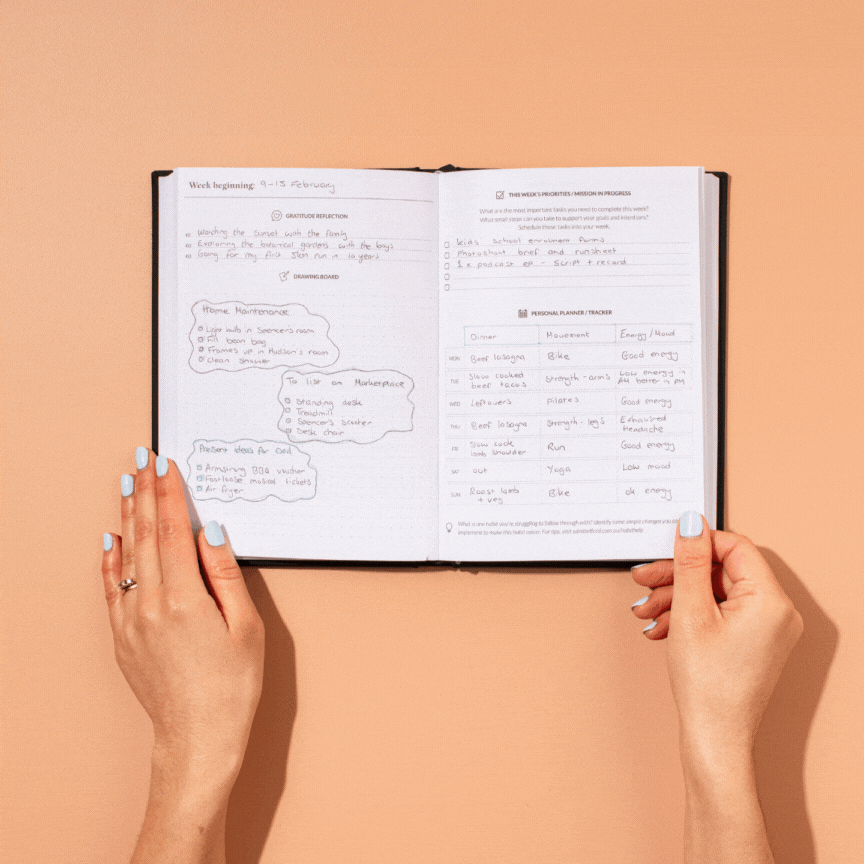 Week beginning: 9-15 February
GRATITUDE REFLECTION
Watching the sunset with the family
Exploring the botanical gardens with the boys
Going for my first 5km run in 10 years
DRAWING BOARD
Home Maintenance
Light bulb in Spencer's room
Fill bean bag
Frames up in Hudson's room
Clean shower
To list on Marketplace
Standing desk
Treadmill
Spencer's scooter
Desk chair
Present ideas for Dad
Armstrong BBQ voucher
Footloose musical tickets
Air fryer
THIS WEEK'S PRIORITIES / MISSION IN PROGRESS
What are the most important tasks you need to complete this week?
What small steps can you take to support your goals and intentions?
Schedule those tasks into your week.
kids school enrolment forms
Photoshoot brief and runsheet
1 x podcast ep - script + record
PERSONAL PLANNER / TRACKER
Dinner Movement Energy / Mood
MON Beef lasagna Bike Good energy
TUE Slow cooked beef tacos Strength - arms Low energy in AM better in PM
WED Leftovers Pilates Good energy
THU Beef lasagna Strength - legs Exhausted Headache
FRI Slow cook lamb shoulder Run Good energy
SAT out Yoga Low mood
SUN Roast lamb + veg Bike ok energy
What is one habit you're struggling to follow through with? Identify some simple changes you can
implement to make this habit easier. For tips, visit